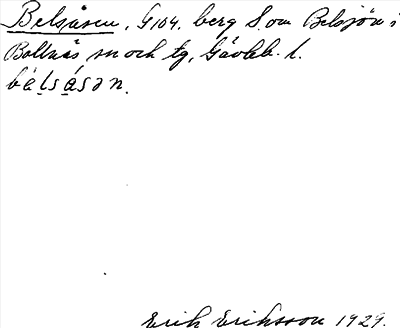 Belsåsen, G104. berg S. om Belsjön i
Bollnäs sn och tg, Gävleb. l.
bélsåsən.
Erik Eriksson 1929.